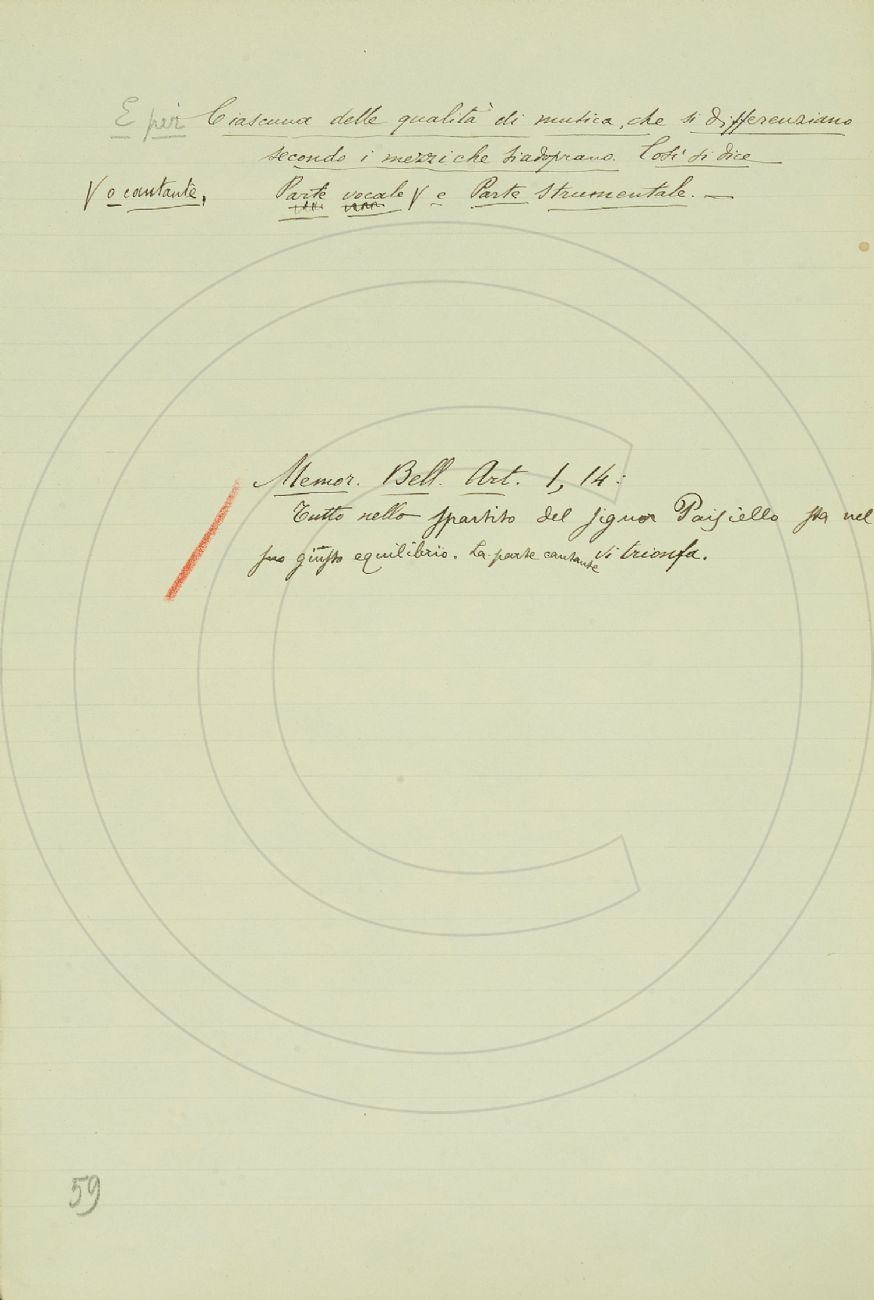 E per Ciascuna delle qualità di musica, che si differenziano
secondo i mezzi che si adoprano. Così si dice
V o cantante, Parte vocale V e Parte strumentale. —
Memor. Bell. Art. 1, 14:
Tutto nello spartito del signor Paisiello sta nel
suo giusto equilibrio. La parte cantante vi trionfa.
59